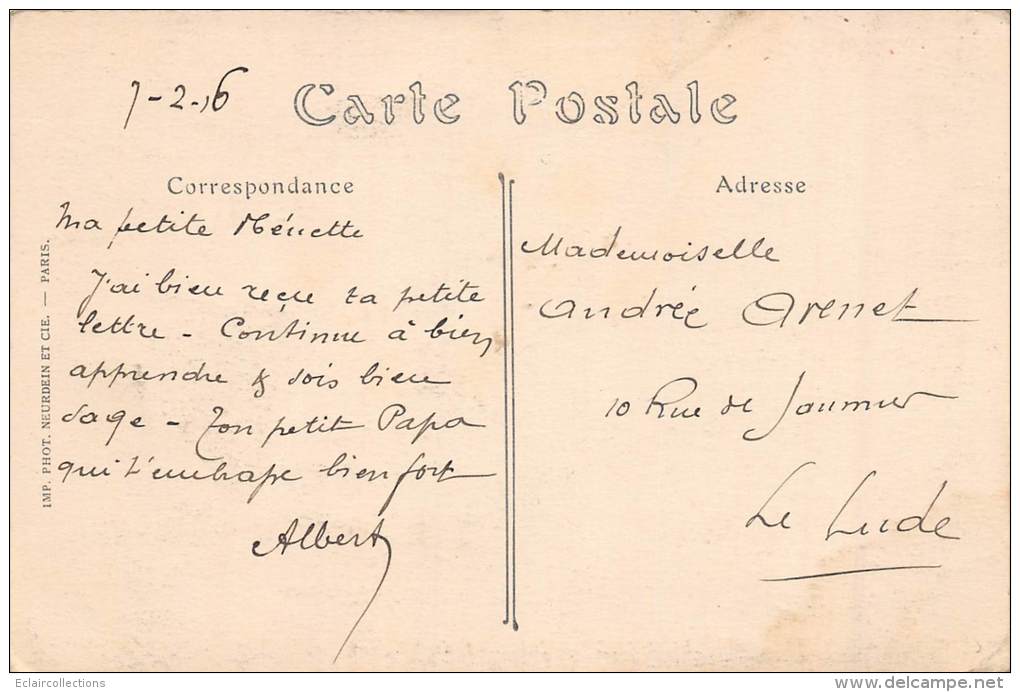 7-2-16
Carte Postale
Correspondance
Adresse
Ma petite
J'ai bien reçu ta petite
lettre - Continue à bien
apprendre & sois bien
sage - Ton petit Papa
qui t'embrasse bien fort
Albert
Mademoiselle
Andrée Arenet
10 Rue de
Le Lude
IMP. PHOT. NEURDEIN ET CIE. — PARIS.
Eclaircollections
www.delcampe.net